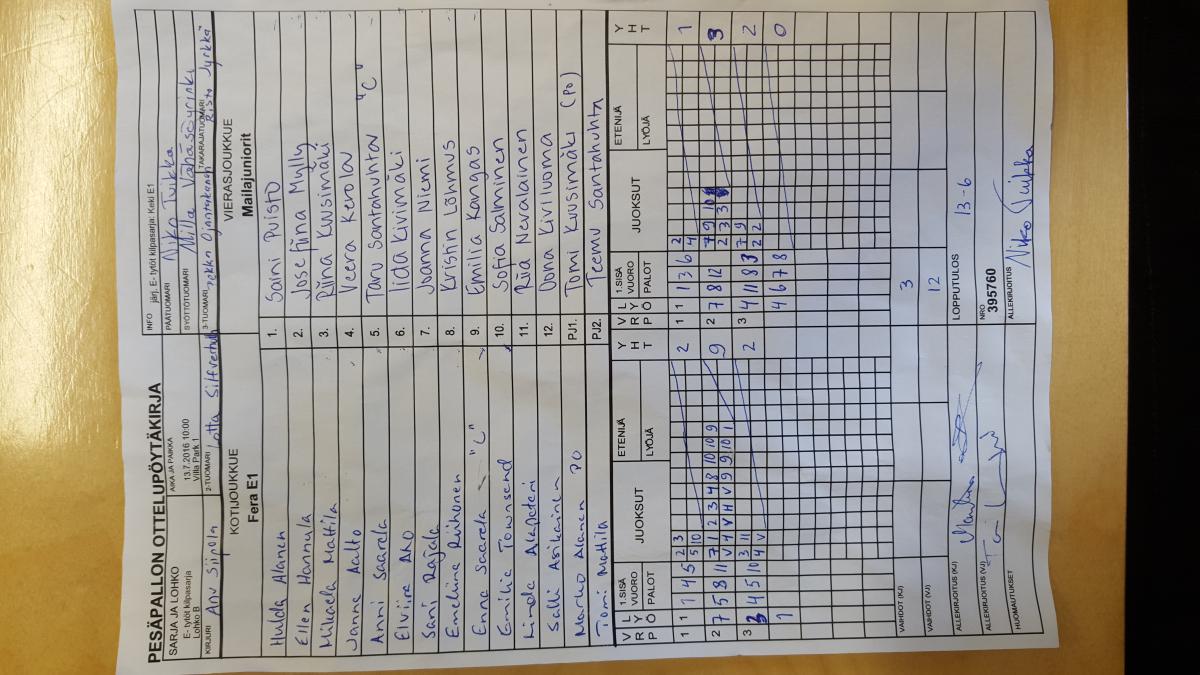 PESÄPALLON OTTELUPÖYTÄKIRJA
SARJA JA LOHKO
E- tytöt kilpasarja
Lohko B
AIKA JA PAIKKA
13.7.2016 10:00
Villa Park 1
INFO järj. E- tytöt kilpasarja: Keiki E1
PÄÄTUOMARI Niko Tuikka
SYÖTTÖTUOMARI Milla Vähäsöyrinki
KIRJURI Anu Siipola
2-TUOMARI Lotta
3-TUOMARI
TAKARAJATUOMARI Risto Jyrkkä
KOTIJOUKKUE
Fera E1
VIERASJOUKKUE
Mailajuniorit
Hulda Alanen 1. Saini Puisto
Ellen Hannula 2. Josefiina Mylly
Mikaela Mattila 3. Riina Kuusimäki
Janna Aalto 4. Veera Kerola
Anni Saarela 5. Taru Santahuhta "C"
Elviira Aho 6. Iida Kivimäki
Sani Rajala 7. Joanna Niemi
Emeliina Riihonen 8. Kristin Lõhmus
Enna Saarela "C" 9. Emilia Kangas
Emilia Townsend 10. Sofia Salminen
Linda Alapeteri 11. Riia Nevalainen
Salli Asikainen 12. Oona Kiviluoma
Marko Alanen PO PJ1. Tomi Kuusimäki (PO)
Tomi Mattila PJ2. Teemu Santahuhta
V R P
L Y Ö
1.SISÄ VUORO
PALOT
JUOKSUT
ETENIJÄ
LYÖJÄ
Y H T
V R P
L Y Ö
1.SISÄ VUORO
PALOT
JUOKSUT
ETENIJÄ
LYÖJÄ
Y H T
1 1 1 4 5 2 3 2 1 1 1 3 6 2 1
5 10 4
2 7 5 8 11 7 1 2 3 4 8 10 10 9 9 2 7 8 12 7 9 10 3
V 4 V H V 9 9 10 1 2 3 3
3 3 4 5 10 3 11 2 3 4 11 8 3 7 9 2
4 V 2 2
1 4 6 7 8 0
VAIHDOT (KJ) 3
VAIHDOT (VJ) 12
ALLEKIRJOITUS (KJ)
LOPPUTULOS 13-6
ALLEKIRJOITUS (VJ)
NRO
395760
HUOMAUTUKSET
ALLEKIRJOITUS Niko Tuikka